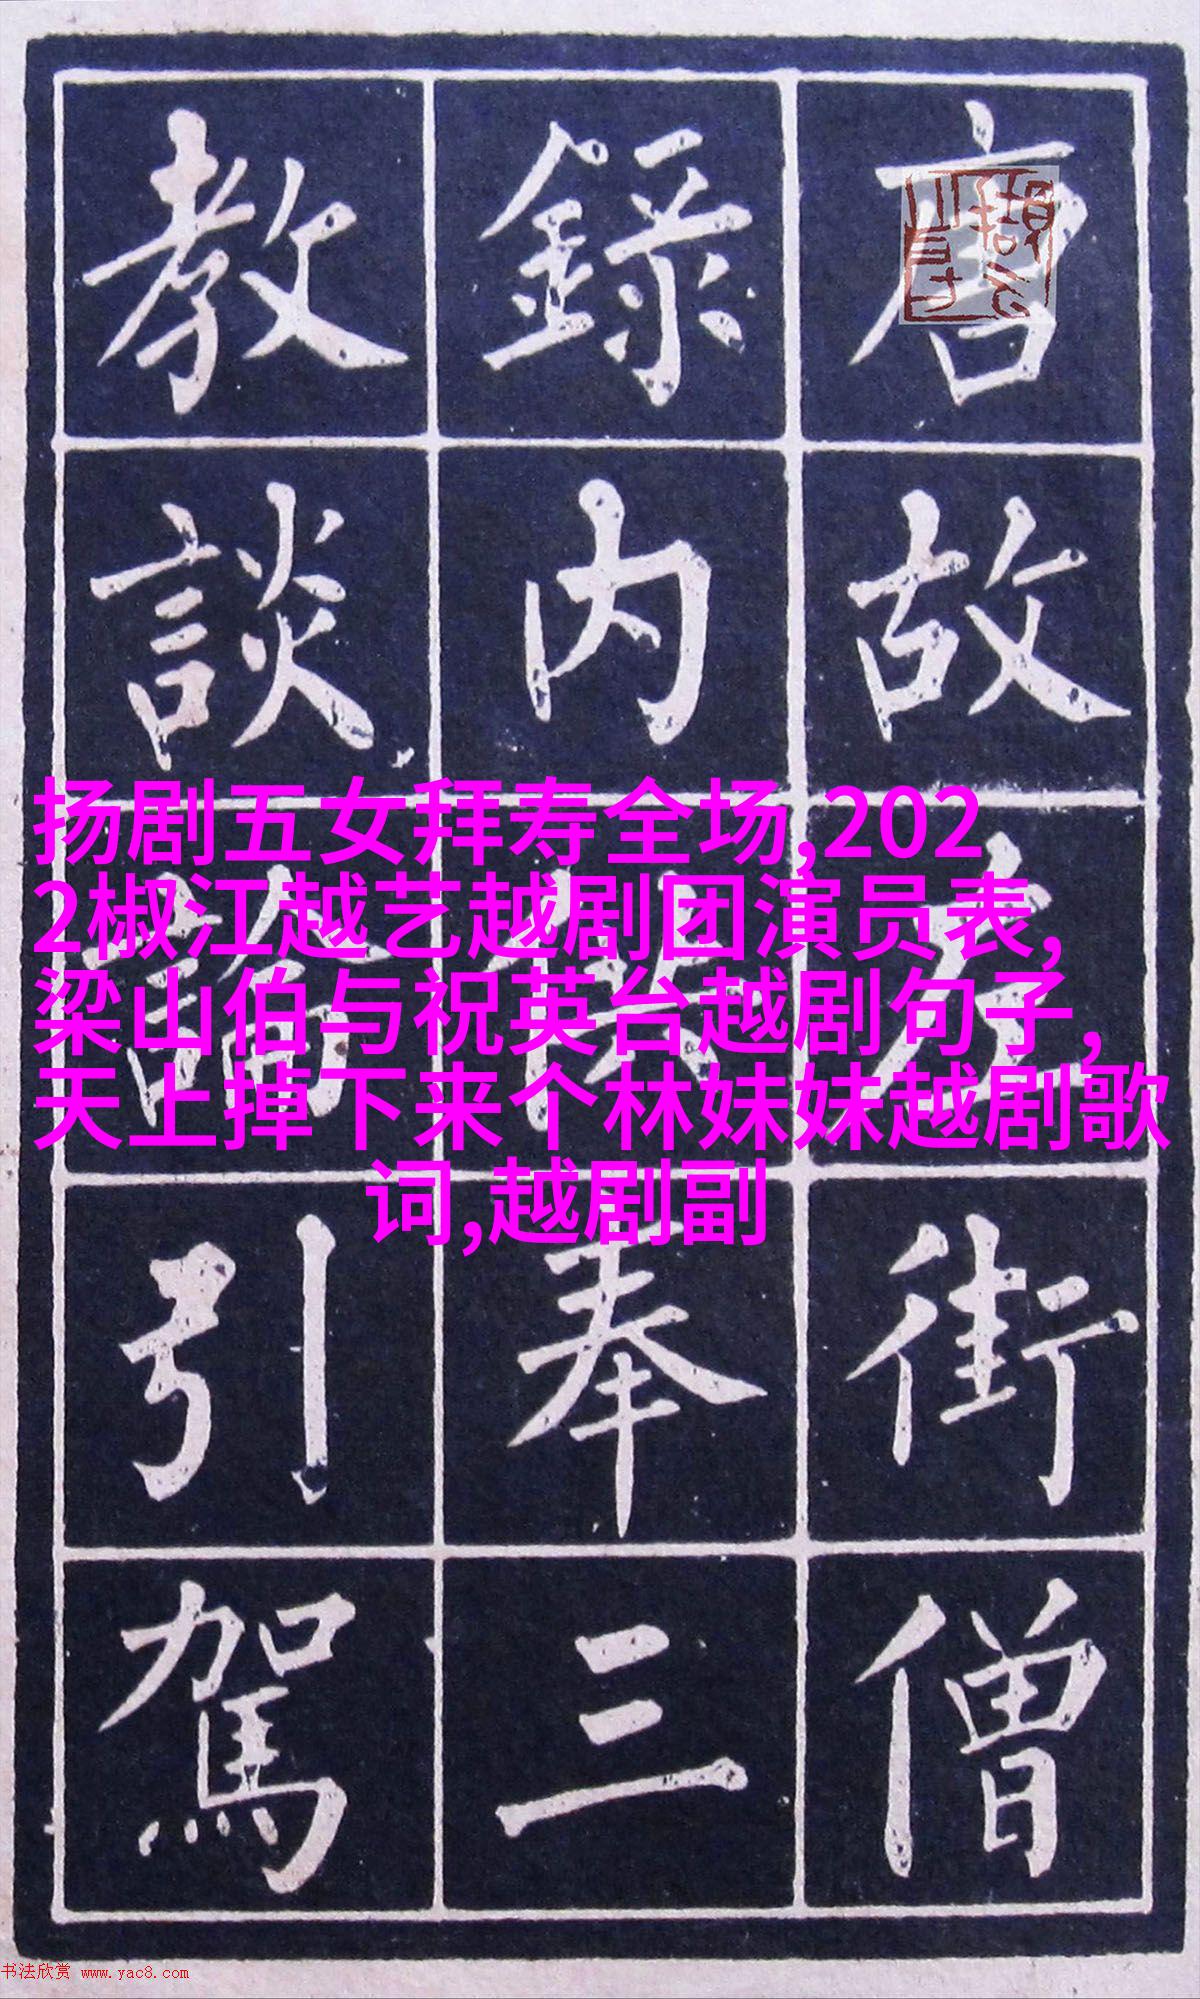 唐故左街僧
錄內供奉三
教談論引駕
扬剧五女拜寿全场,202
2椒江越艺越剧团演员表,
梁山伯与祝英台越剧句子,
天上掉下来个林妹妹越剧歌
词,越剧副
书法欣赏 www.yac8.com